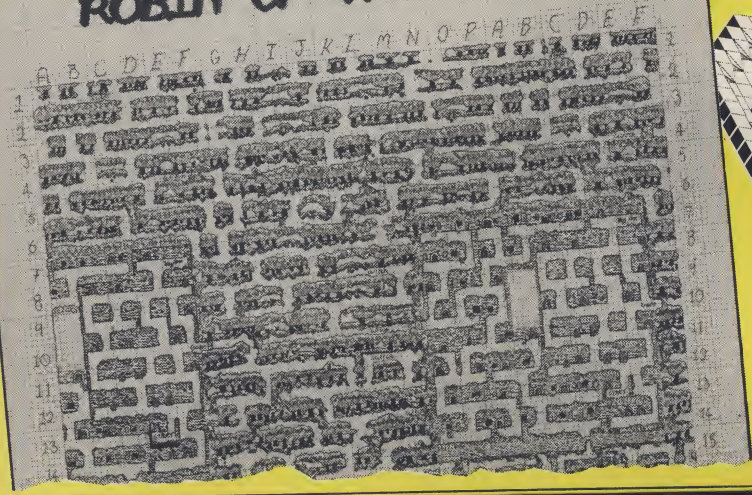 ROBIN OF
A B C D E F G H I J K L M N O P A B C D E F
1
2
3
4
5
6
7
8
9
10
11
12
13
1
2
3
4
5
6
8
9
10
11
12
13
14
15